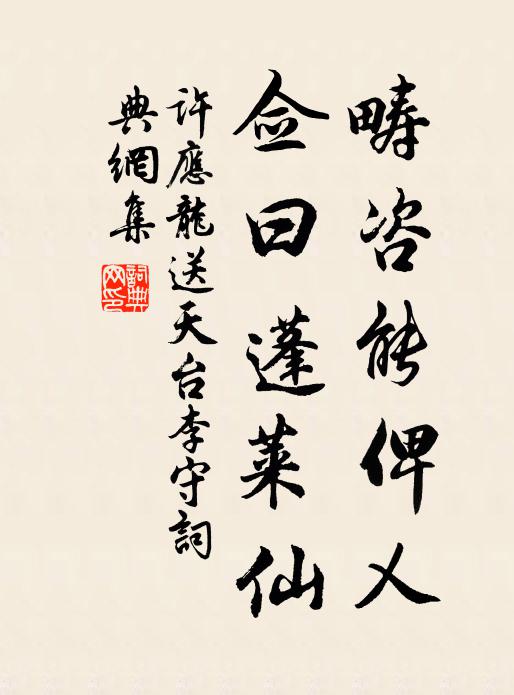 疇咨能俾乂
僉曰蓬萊仙
許應龍送天台李守詞
典網集
詞典網印